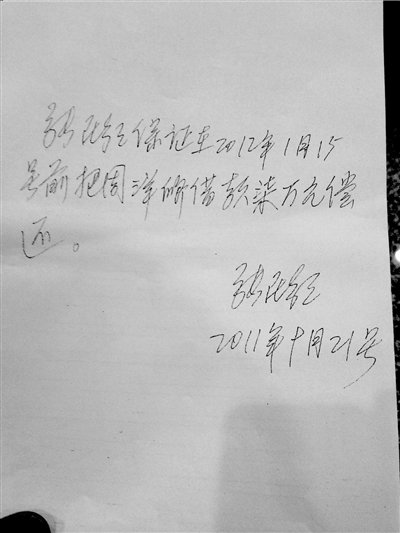 保证在2012年1月15
号前把周洋娇借款柒万元偿
还。
2011年十月21号